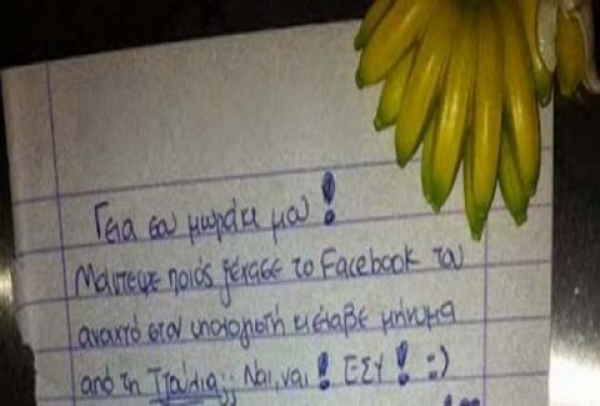 Γεια σου μωράκι μου!
Μάντεψε ποιός ξέχασε το Facebook του
ανοιχτό στον υπολογιστή κ έλαβε μήνυμα
από τη Τζούλια;; Ναι, ναι! ΕΣΥ! :)